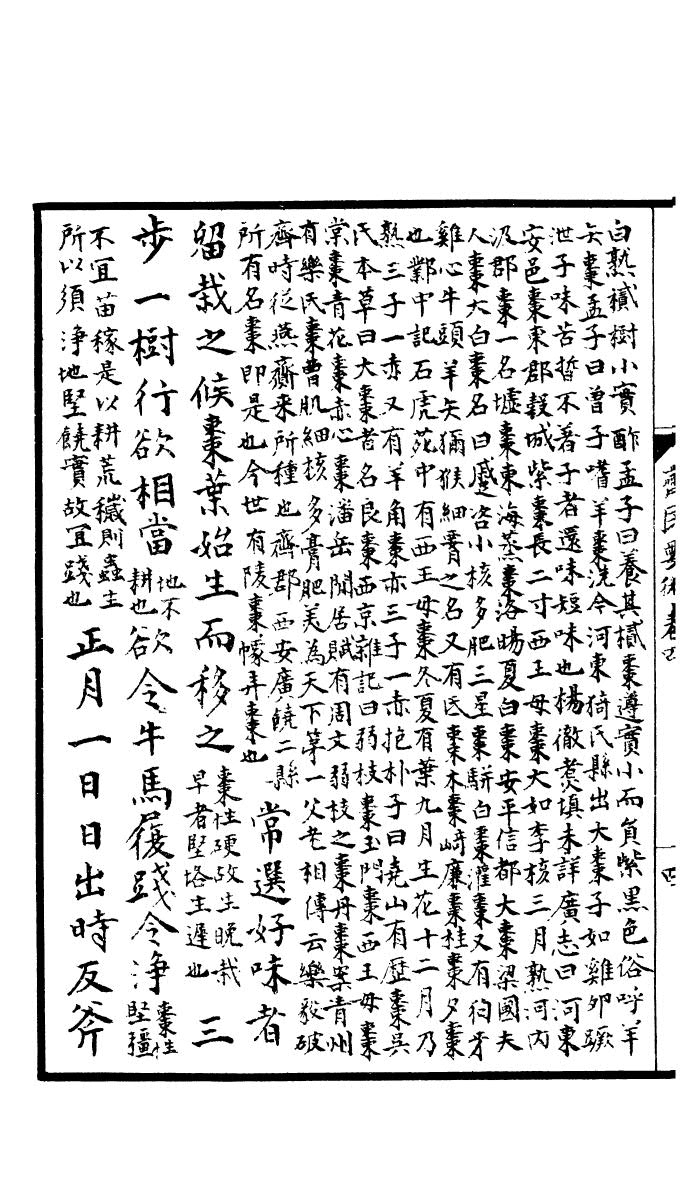 白熟樲樹小實酢孟子曰養其樲棗遵實小而負紫黑色俗呼羊
矢棗孟子曰曾子嗜羊棗洗今河東猗氏縣出大棗子如雞卵蹶
泄子味苦晢不著子者還味短味也楊徹煮填未詳廣志曰河東
安邑棗東郡穀城紫棗長二寸西王母棗大如李核三月熟河内
汲郡棗一名墟棗東海蒸棗洛陽夏白棗安平信都大棗梁國夫
人棗大白棗名曰蹙咨小核多肥三星棗駢白棗灌棗又有狗牙
雞心牛頭羊矢獼猴細胥之名又有氐棗木棗崎廉棗桂棗夕棗
也鄴中記石虎苑中有西王母棗冬夏有葉九月生花十二月乃
熟三子一赤又有羊角棗亦三子一赤抱朴子曰堯山有歷棗吳
氏本草曰大棗者名良棗西京雜記曰弱枝棗玉門棗西王母棗
棠棗青花棗赤心棗潘岳閒居賦有周文弱枝之棗丹棗案青州
有樂氏棗豊肌細核多膏肥美為天下第一父老相傳云樂毅破
齊時從燕齎来所種也齊郡西安廣饒二縣
所有名棗即是也今世有陵棗幪弄棗也
常選好味者
留栽之候棗葉始生而移之
棗性硬故生晚栽
早者堅垎生遲也
三
步一樹行欲相當
地不
耕也
欲令牛馬履踐令浄
棗性
堅彊
不宜苗稼是以耕荒穢則蟲生
所以須浄地堅饒實故宜踐也
正月一日日出時反斧
齊民要術卷四
四